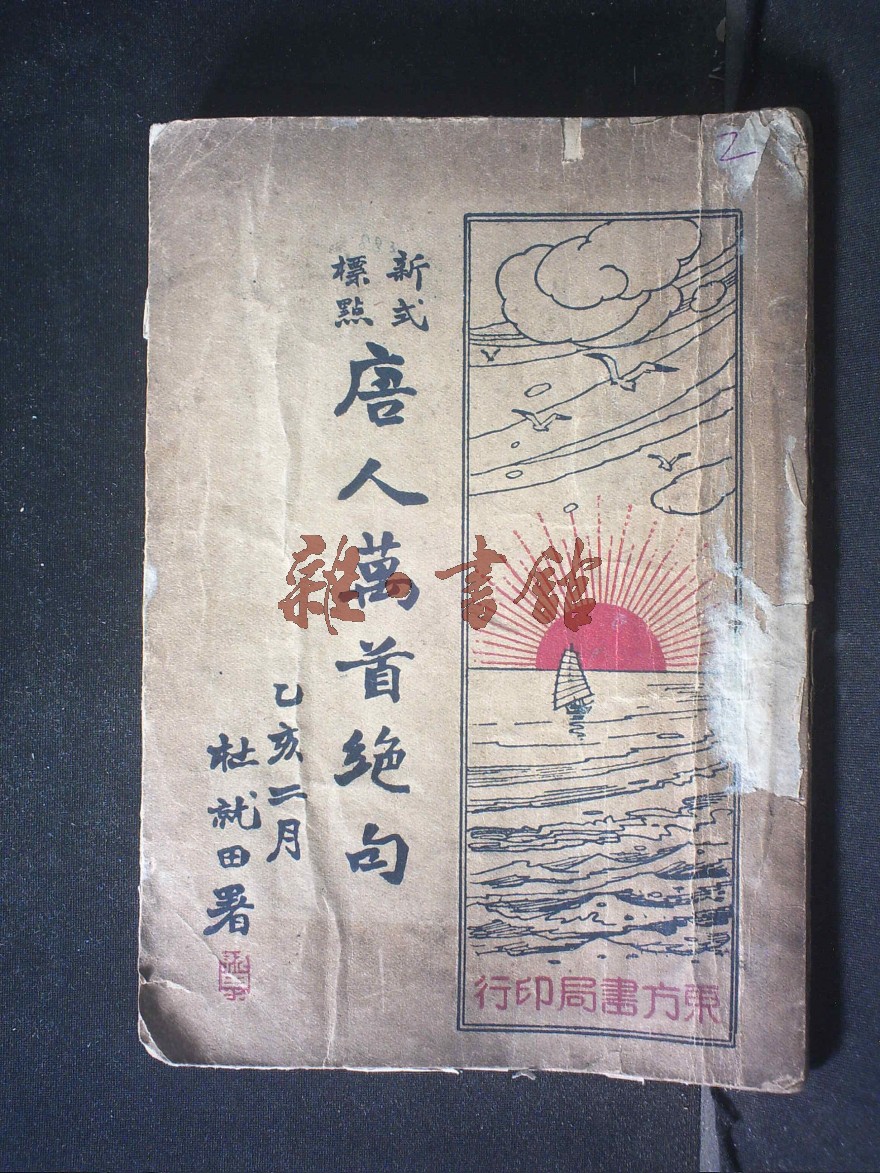 新式
標點
唐人萬首絶句
乙亥二月
杜就田署
東方書局印行
雜·書館
2